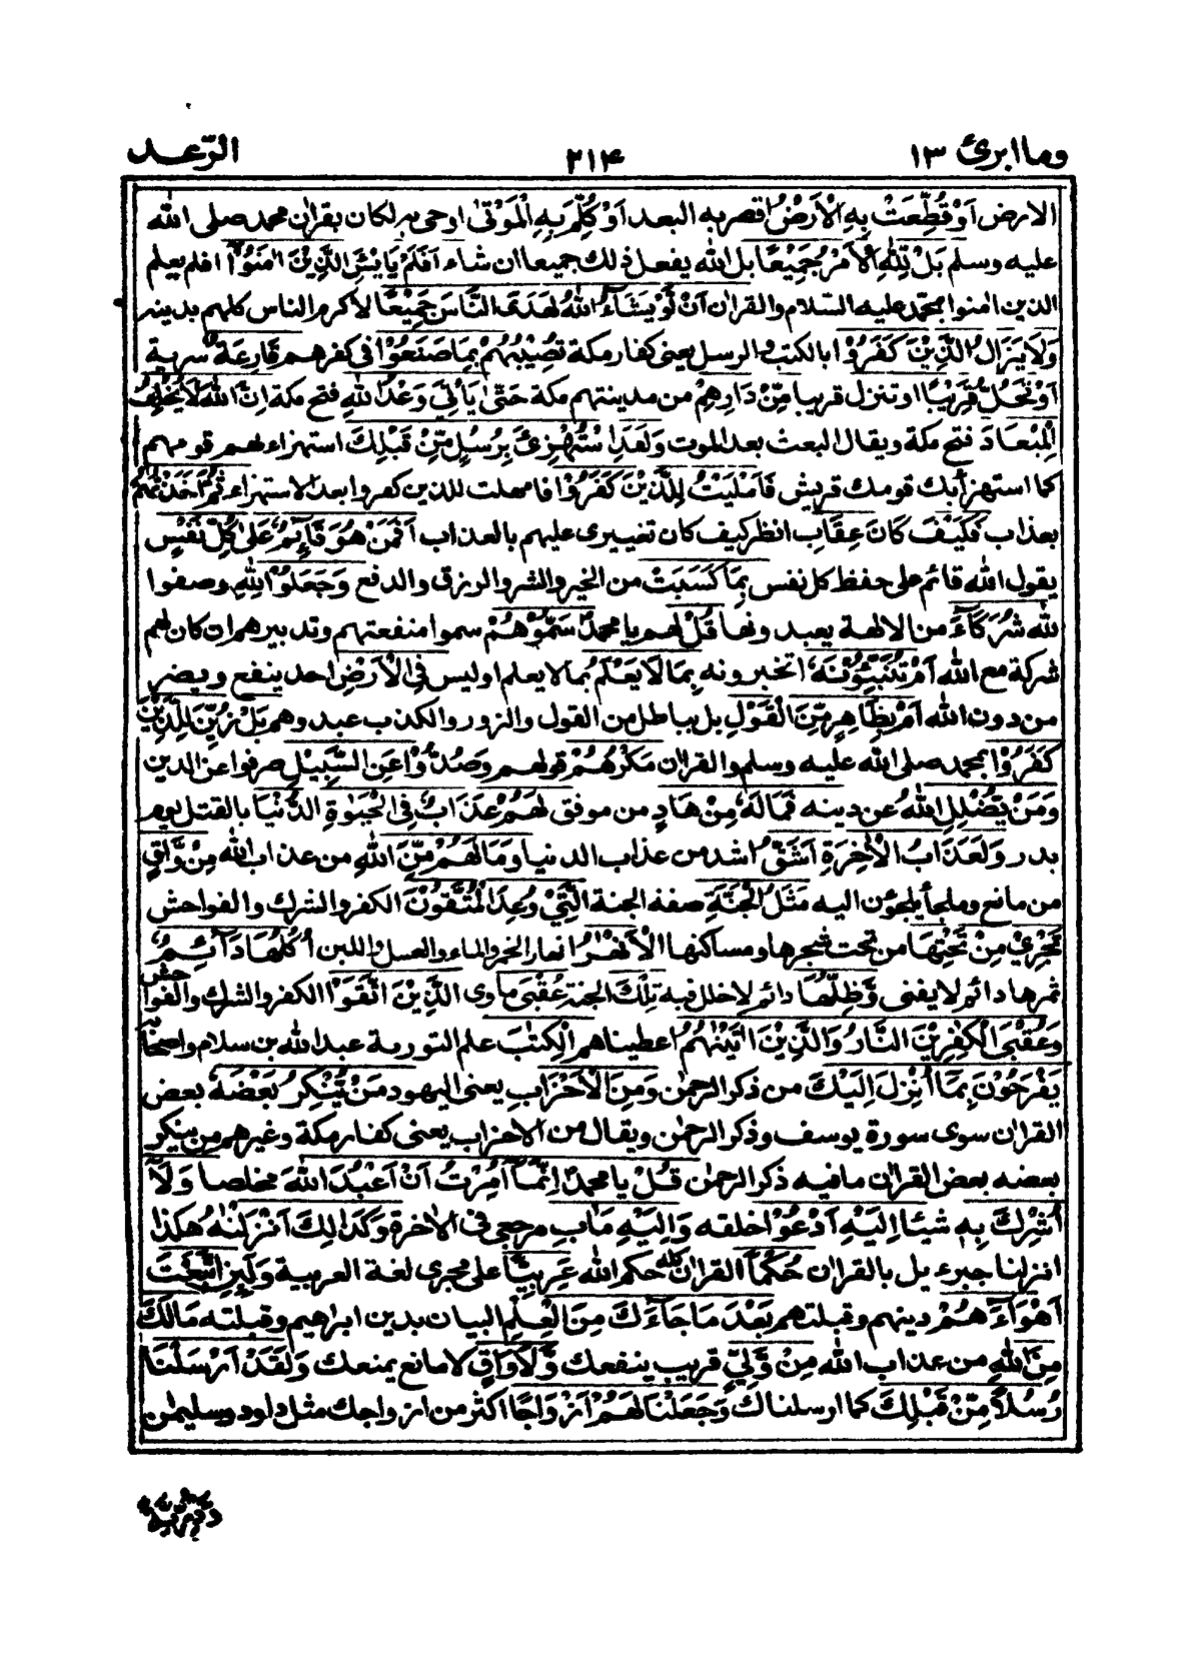 وما ابرئ ١٣ ٢١٤ الرّعد
الارض اَوْ قُطِّعَتْ بِهِ الْاَرْضُ اقصر به البعد اَوْ كُلِّمَ بِهِ الْمَوْتٰى او حى به لكان بقراٰن محمد صلى الله
عليه وسلم بَلْ لِّلّٰهِ الْاَمْرُ جَمِيْعًا بل الله يفعل ذلك جميعا ان شاء اَفَلَمْ يَايْئَسِ الَّذِيْنَ اٰمَنُوْٓا افلم يعلم
الذين اٰمنوا بمحمد عليه السلام والقراٰن اَنْ لَّوْ يَشَآءُ اللّٰهُ لَهَدَى النَّاسَ جَمِيْعًا لاكرم الناس كلهم بدينه
وَلَا يَزَالُ الَّذِيْنَ كَفَرُوْا بالكتب والرسل يعنى كفار مكة تُصِيْبُهُمْ بِمَا صَنَعُوْا فى كفرهم قَارِعَةٌ سرية
اَوْ تَحُلُّ قَرِيْبًا او تنزل قريبا مِّنْ دَارِهِمْ من مدينتهم مكة حَتّٰى يَاْتِيَ وَعْدُ اللّٰهِ فتح مكة اِنَّ اللّٰهَ لَا يُخْلِفُ
الْمِيْعَادَ فتح مكة ويقال البعث بعد الموت وَلَقَدِ اسْتُهْزِئَ بِرُسُلٍ مِّنْ قَبْلِكَ استهزاء بهم قومهم
كما استهزأ بك قومك قريش فَاَمْلَيْتُ لِلَّذِيْنَ كَفَرُوْا فامهلت للذين كفروا بعد الاستهزاء ثُمَّ اَخَذْتُهُمْ
بعذاب فَكَيْفَ كَانَ عِقَابِ انظر كيف كان تغييرى عليهم بالعذاب اَفَمَنْ هُوَ قَآئِمٌ عَلٰى كُلِّ نَفْسٍ
يقول الله قائم على حفظ كل نفس بِمَا كَسَبَتْ من الخير والشر والرزق والدفع وَجَعَلُوْا لِلّٰهِ وصفوا
لله شُرَكَآءَ من الالهة يعبد ونها قُلْ لهم يا محمد سَمُّوْهُمْ سموا منفعتهم وتدبيرهم ان كان لهم
شركة مع الله اَمْ تُنَبِّئُوْنَهٗ اتخبرونه بِمَا لَا يَعْلَمُ بما لا يعلم او ليس فِى الْاَرْضِ احد ينفع ويضر
من دون الله اَمْ بِظَاهِرٍ مِّنَ الْقَوْلِ بل بباطل من القول والزور والكذب عبد وهم بَلْ زُيِّنَ لِلَّذِيْنَ
كَفَرُوْا بمحمد صلى الله عليه وسلم والقراٰن مَكْرُهُمْ قولهم وَصُدُّوْا عَنِ السَّبِيْلِ صرفوا عن الدين
وَمَنْ يُّضْلِلِ اللّٰهُ عن دينه فَمَا لَهٗ مِنْ هَادٍ من موفق لَهُمْ عَذَابٌ فِى الْحَيٰوةِ الدُّنْيَا بالقتل يوم
بدر وَلَعَذَابُ الْاٰخِرَةِ اَشَقُّ اشد من عذاب الدنيا وَمَا لَهُمْ مِّنَ اللّٰهِ من عذاب الله مِنْ وَّاقٍ
من مانع وملجأ يلجؤن اليه مَثَلُ الْجَنَّةِ صفة الجنة الَّتِيْ وُعِدَ الْمُتَّقُوْنَ الكفر والشرك والفواحش
تَجْرِيْ مِنْ تَحْتِهَا من تحت شجرها ومساكنها الْاَنْهٰرُ انهار الخمر والماء والعسل واللبن اُكُلُهَا دَآئِمٌ
ثمرها دائم لا يفنى وَّظِلُّهَا دائم لا خلل فيه تِلْكَ الجنة عُقْبَى ماوى الَّذِيْنَ اتَّقَوْا الكفر والشرك والفواحش
وَعُقْبَى الْكٰفِرِيْنَ النَّارُ وَالَّذِيْنَ اٰتَيْنٰهُمُ اعطيناهم الْكِتٰبَ علم التورية عبد الله بن سلام واصحابه
يَفْرَحُوْنَ بِمَآ اُنْزِلَ اِلَيْكَ من ذكر الرحمٰن وَمِنَ الْاَحْزَابِ يعنى اليهود مَنْ يُّنْكِرُ بَعْضَهٗ بعض
القراٰن سوى سورة يوسف وذكر الرحمٰن ويقال من الاحزاب يعنى كفار مكة وغيرهم من ينكر
بعضه بعض القراٰن ما فيه ذكر الرحمٰن قُلْ يا محمد اِنَّمَآ اُمِرْتُ اَنْ اَعْبُدَ اللّٰهَ مخلصا وَلَآ
اُشْرِكَ بِهٖ شيئا اِلَيْهِ اَدْعُوْا خلقه وَاِلَيْهِ مَاٰبِ مرجعى فى الاٰخرة وَكَذٰلِكَ اَنْزَلْنٰهُ هكذا
انزلنا جبرءيل بالقراٰن حُكْمًا القراٰن كله حكم الله عَرَبِيًّا على مجرى لغة العربية وَلَئِنِ اتَّبَعْتَ
اَهْوَآءَهُمْ دينهم وقبلتهم بَعْدَ مَا جَآءَكَ مِنَ الْعِلْمِ البيان بدين ابراهيم وقبلته مَا لَكَ
مِنَ اللّٰهِ من عذاب الله مِنْ وَّلِيٍّ قريب ينفعك وَّلَا وَاقٍ لا مانع يمنعك وَلَقَدْ اَرْسَلْنَا
رُسُلًا مِّنْ قَبْلِكَ كما ارسلناك وَجَعَلْنَا لَهُمْ اَزْوَاجًا اكثر من ازواجك مثل داود وسليمٰن